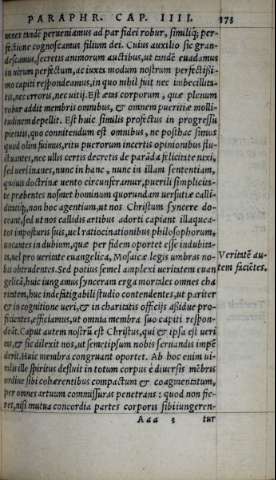 PARAPHR. CAP. IIII. 173
omnes tandē perueniamus ad par fidei robur, similiq; per-
fectione cognoscamus filium dei. Cuius auxilio sic gran-
descamus, secretis animorum auctibus, ut tandē euadamus
in uirum perfectum, ac iuxta modum nostrum perfectissi-
mo capiti respondeamus, in quo nihil fuit nec imbecillita-
tis, nec erroris, nec uitij. Est ætas corporum, quæ plenum
robur addit membris omnibus, & omnem pueritiæ molli-
tudinem depellit. Est huic similis profectus in progressu
pietatis, quo connitendum est omnibus, ne posthac simus
quod olim fuimus, ritu puerorum incertis opinionibus flu-
ctuantes, nec ullis certis decretis de parāda felicitate nixi,
sed ueri inanes, nunc in hanc, nunc in illam sententiam,
quouis doctrinæ uento circunferamur, puerili simplicita-
te præbentes nosmet hominum quorundam uersutiæ calli-
ditatiq;, non hoc agentium, ut nos Christum syncere do-
ceant, sed ut nos callidis artibus adorti capiant illaquea-
tos imposturis suis, uel ratiocinationibus philosophorum,
uocantes in dubium, quæ per fidem oportet esse indubita-
ta, uel pro ueritate euangelica, Mosaicæ legis umbras no-
bis obtrudentes. Sed potius semel amplexi ueritatem euan
Veritatē au-
gelicā, huic iungamus synceram erga mortales omnes cha
tem faciētes.
ritatem, huc indefatigabili studio contendentes, ut pariter
& in cognitione ueri, & in charitatis officijs assidue pro-
ficientes, efficiamus, ut omnia membra suo capiti respon-
deāt. Caput autem nostrū est Christus, qui & ipsa est ueri
tas, & sic dilexit nos, ut semetipsum nobis seruandis impē
derit. Huic membra congruant oportet. Ab hoc enim ui-
talis ille spiritus defluit in totum corpus è diuersis mēbris
ordine sibi cohærentibus compactum & coagmentatum,
per omnes artuum commissuras penetrans: quod non fie-
ret, nisi mutua concordia partes corporis sibi iungeren-
Aaa 3 tur